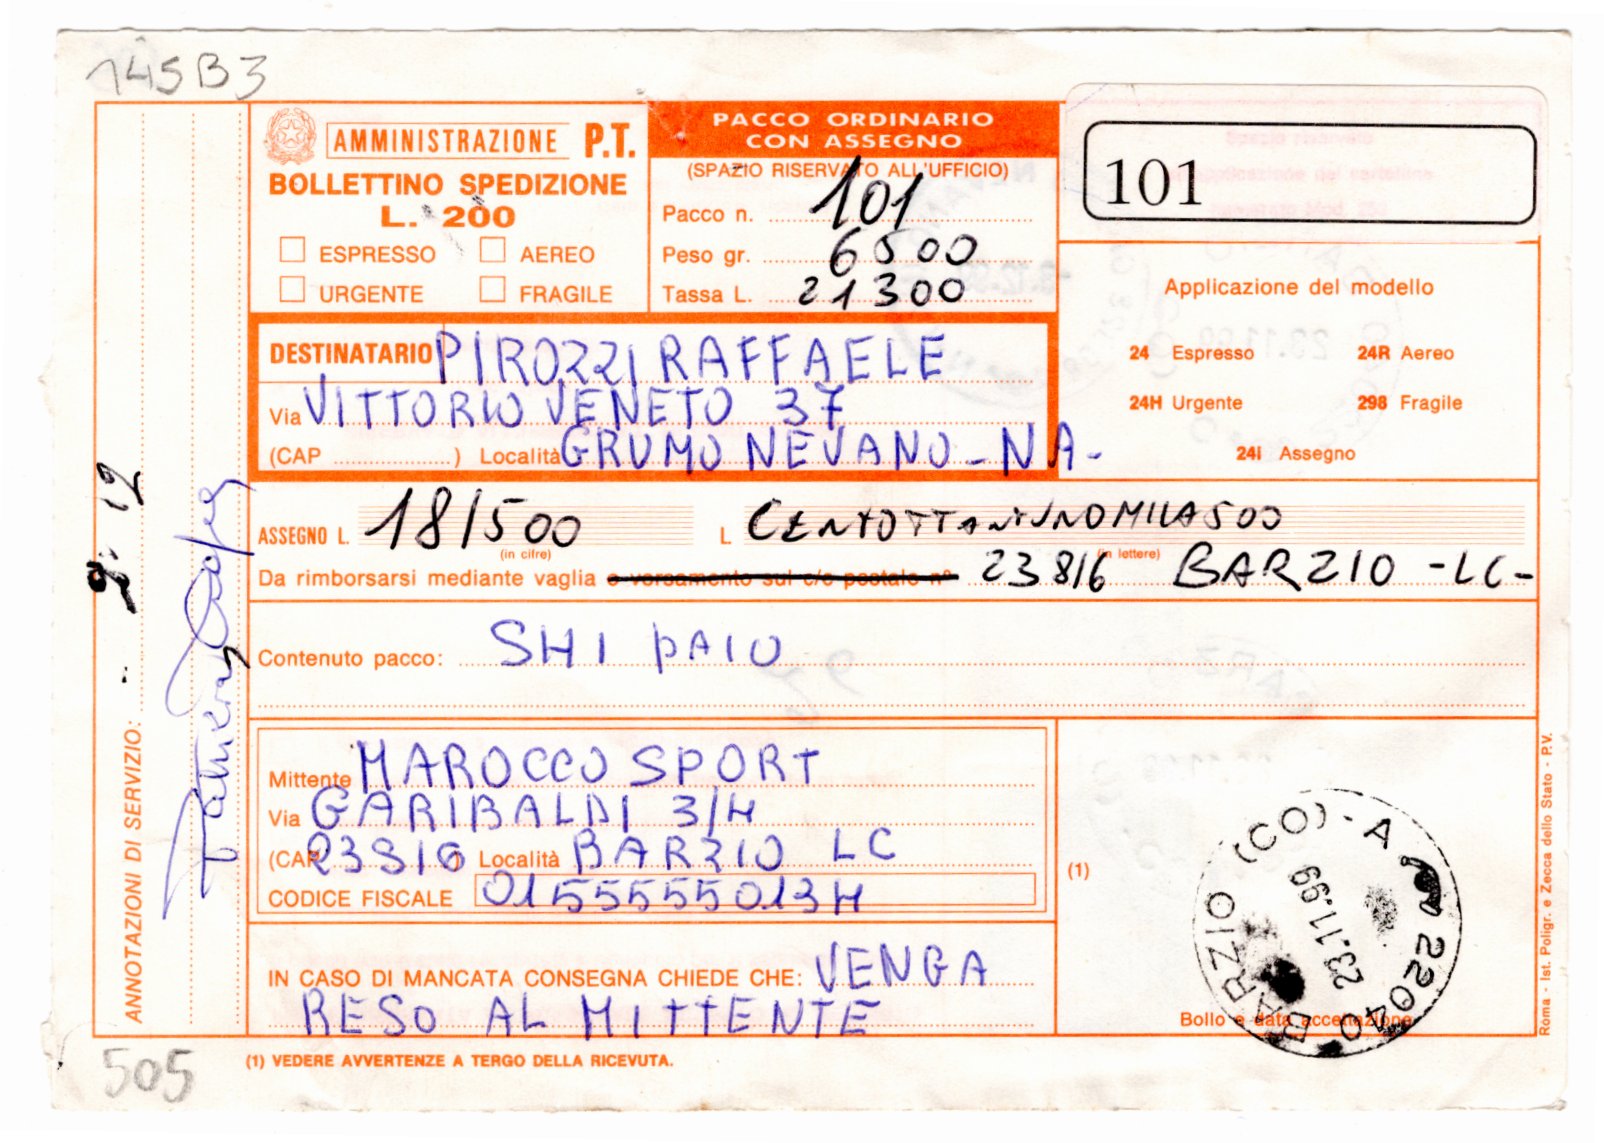 145B3
AMMINISTRAZIONE P.T.
BOLLETTINO SPEDIZIONE
L. 200
ESPRESSO AEREO
URGENTE FRAGILE
PACCO ORDINARIO
CON ASSEGNO
(SPAZIO RISERVATO ALL'UFFICIO)
Pacco n. 101
Peso gr. 6500
Tassa L. 21300
101
Applicazione del modello
24 Espresso 24R Aereo
24H Urgente 298 Fragile
24I Assegno
DESTINATARIO PIROZZI RAFFAELE
Via VITTORIO VENETO 37
(CAP ) Località GRUMO NEVANO - NA -
ASSEGNO L. 181500 L. CENTOTTANTUNOMILA500
(in cifre) (in lettere)
Da rimborsarsi mediante vaglia o versamento sul c/c postale n° 23816 BARZIO - LC -
Contenuto pacco: SHI PAIO
Mittente MAROCCO SPORT
Via GARIBALDI 3/H
(CAP 23816) Località BARZIO LC
CODICE FISCALE 01555550134
IN CASO DI MANCATA CONSEGNA CHIEDE CHE: VENGA
RESO AL MITTENTE
(1)
BARZIO (CO) - A 22040
23.11.99
Bollo e data accettazione
ANNOTAZIONI DI SERVIZIO:
Roma - Ist. Poligr. e Zecca dello Stato - P.V.
505
(1) VEDERE AVVERTENZE A TERGO DELLA RICEVUTA.